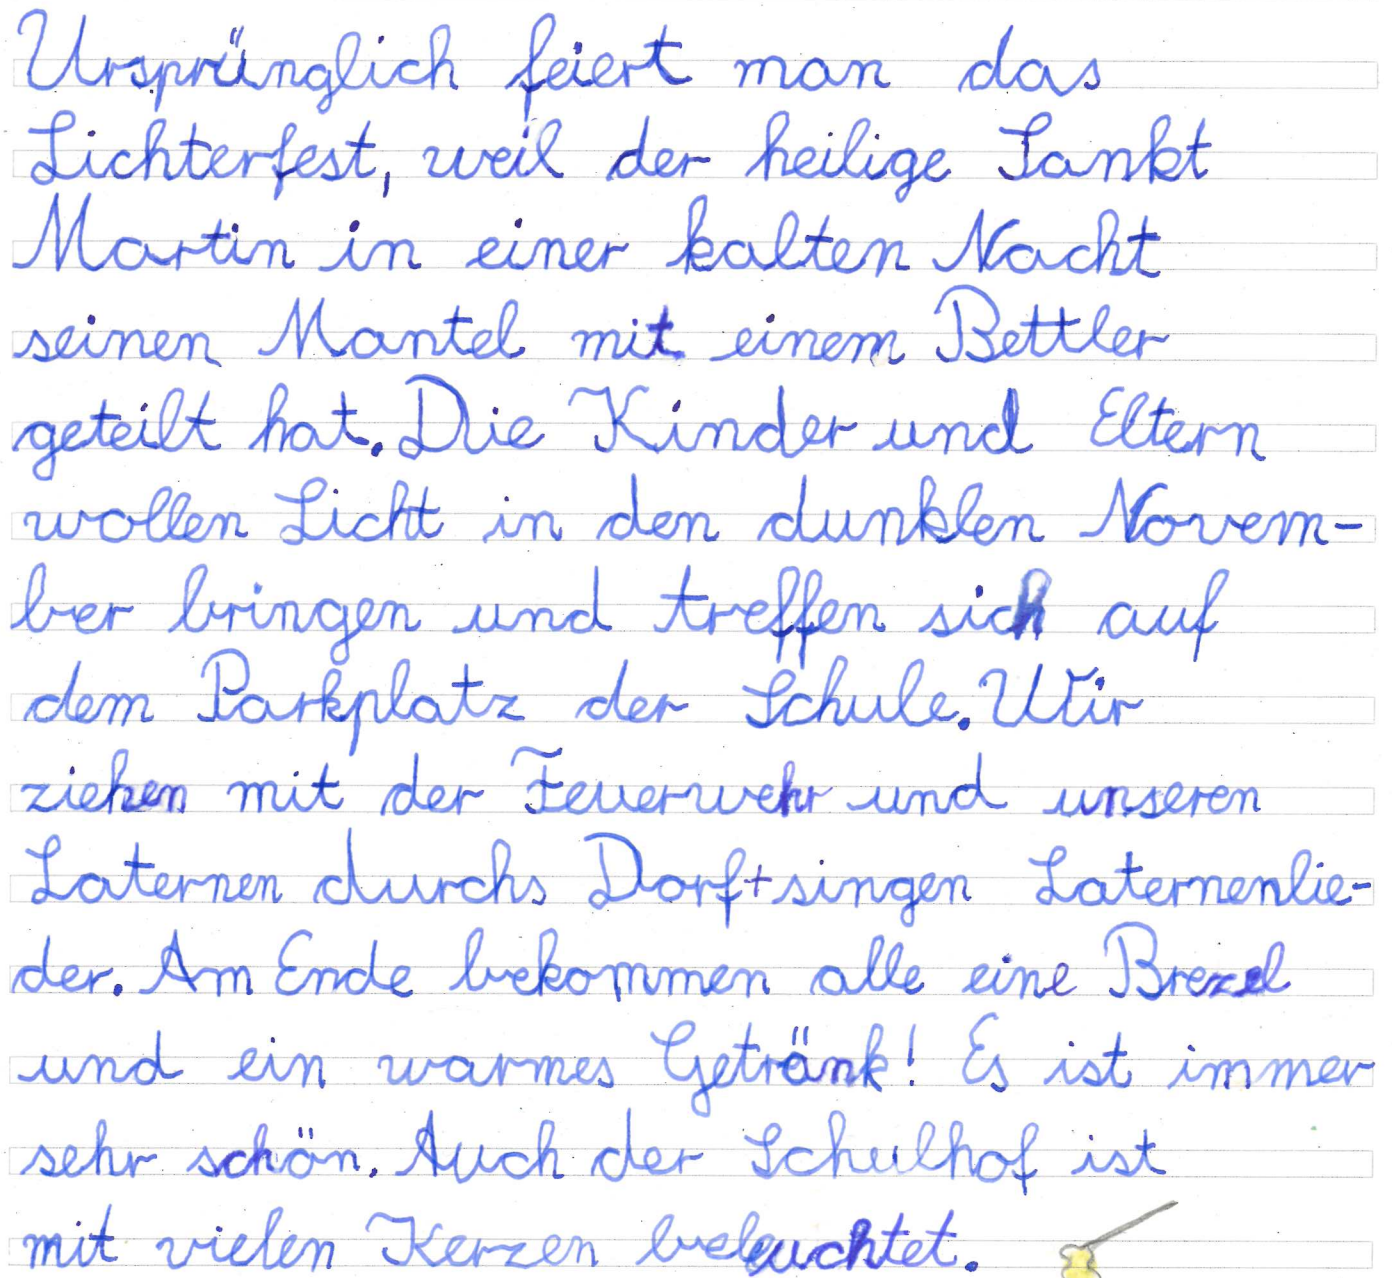 Ursprünglich feiert man das
Lichterfest, weil der heilige Sankt
Martin in einer kalten Nacht
seinen Mantel mit einem Bettler
geteilt hat. Die Kinder und Eltern
wollen Licht in den dunklen Novem-
ber bringen und treffen sich auf
dem Parkplatz der Schule. Wir
ziehen mit der Feuerwehr und unseren
Laternen durchs Dorf + singen Laternenlie-
der. Am Ende bekommen alle eine Brezel
und ein warmes Getränk! Es ist immer
sehr schön. Auch der Schulhof ist
mit vielen Kerzen beleuchtet.